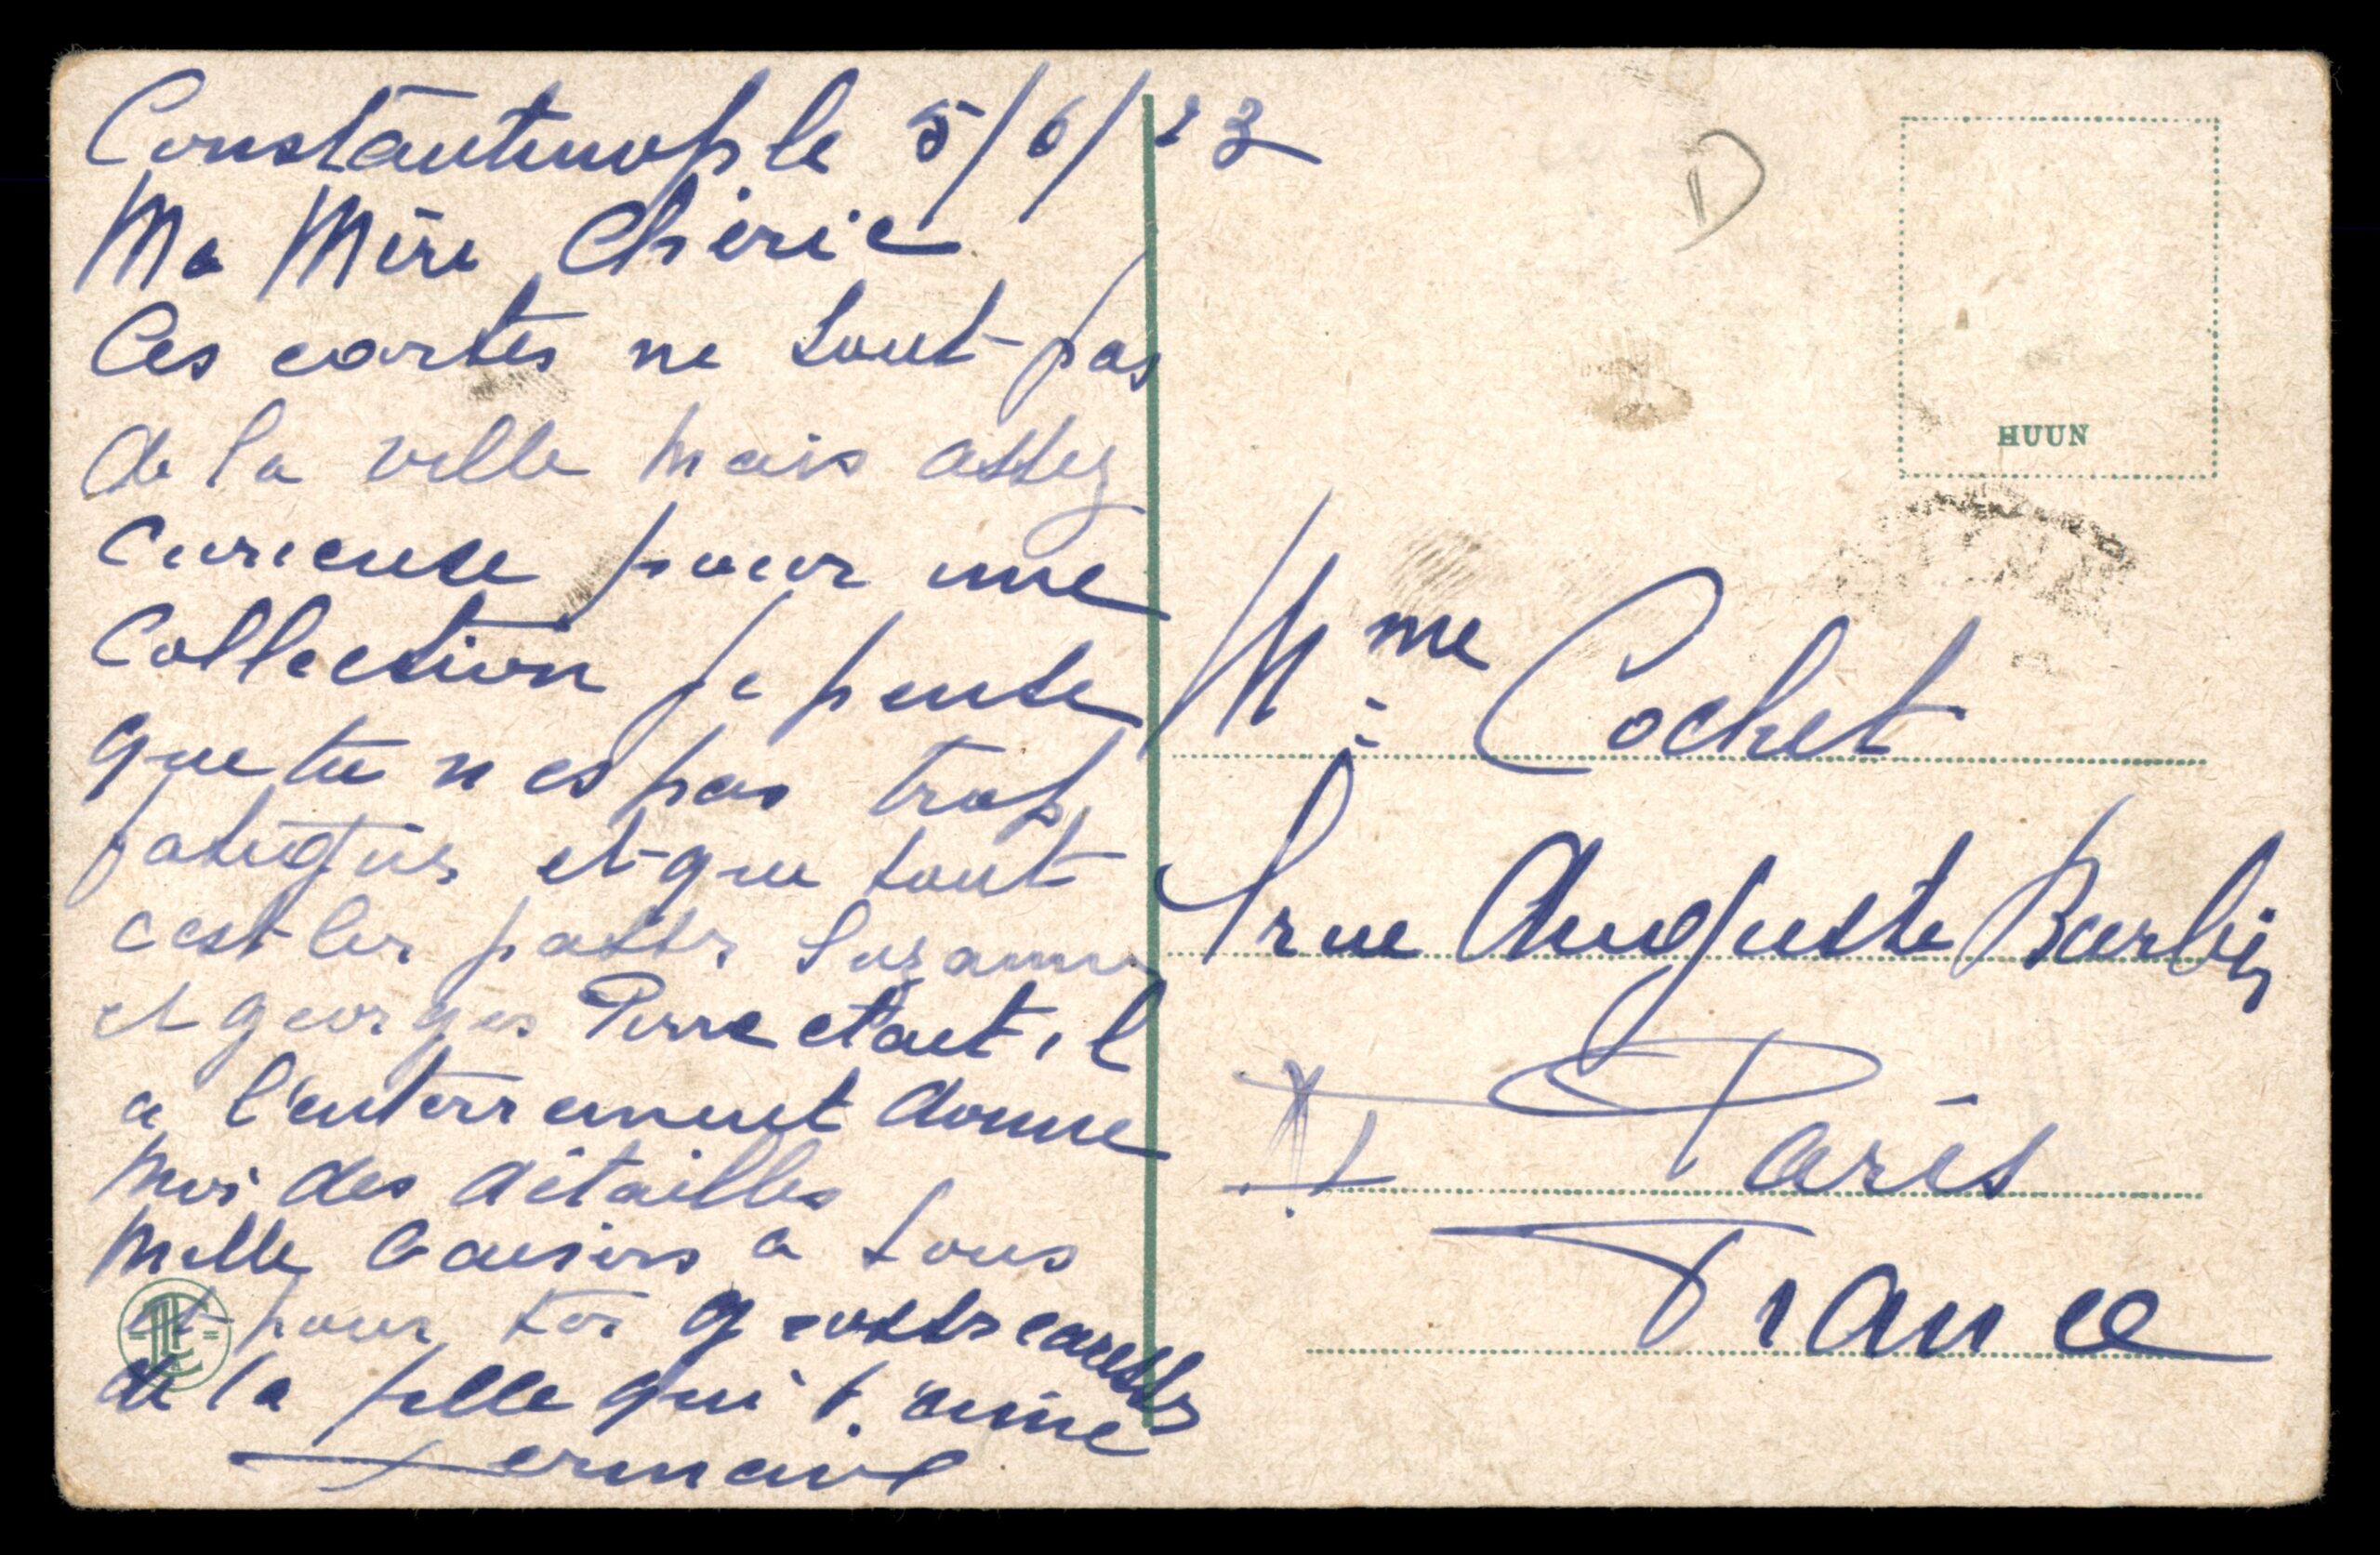 Constantinople 5/6/23
Ma Mère Chérie
Ces cartes ne sont pas
de la ville mais assez
curieuse pour une
Collection je pense
que tu n es pas trop
fatiguée et que tout
c est bien passer Suzanne
et georges Pierre etait il
a l'enterrement donne
moi des détailles
Mille baisers a tous
et pour toi grosses caresses
de la fille qui t'aime
Germaine
D
HUUN
Mme Cochet
1 rue Auguste Barbier
Paris
France